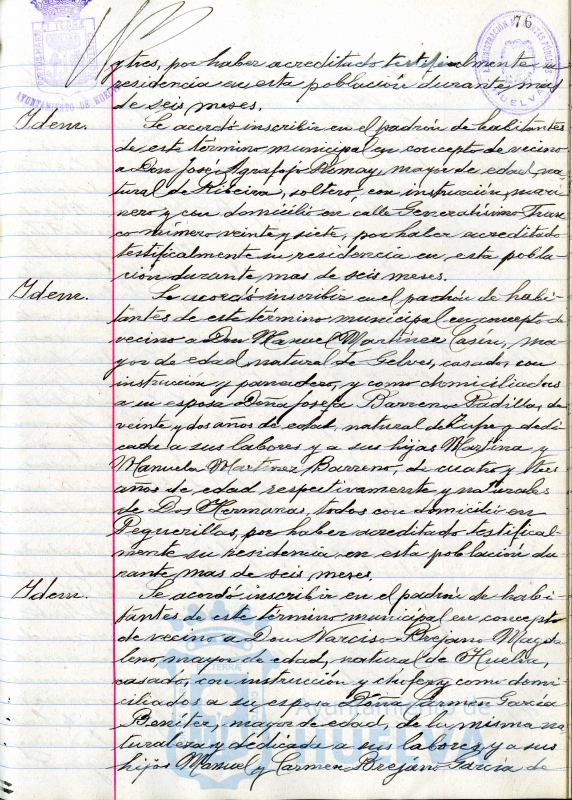 76
AYUNTAMIENTO DE HUELVA
ADMINISTRACIÓN
HUELVA
y tres, por haber acreditado testificalmente su
residencia en esta población durante mas
de seis meses.
Idem. Se acordó inscribir en el padrón de habitantes
de este término municipal en concepto de vecino
a Don José Agrafojo Romay, mayor de edad, na-
tural de Ribeira, soltero, con instrucción, mari-
nero y con domicilio en calle Generalísimo Fran-
co número veinte y siete, por haber acreditado
testificalmente su residencia en esta pobla-
ción durante mas de seis meses.
Idem. Se acordó inscribir en el padrón de habi-
tantes de este término municipal en concepto de
vecino a Don Manuel Martínez Casín, ma-
yor de edad, natural de Gelves, casado, con
instrucción y panadero, y como domiciliados
a su esposa Doña Josefa Barreno Padilla, de
veinte y dos años de edad, natural de y dedi-
cada a sus labores y a sus hijas Martina y
Manuela Martínez Barreno, de cuatro y tres
años de edad respectivamente y naturales
de Dos Hermanas, todos con domicilio en
Peguerillas, por haber acreditado testifical-
mente su residencia en esta población du-
rante mas de seis meses.
Idem. Se acordó inscribir en el padrón de habi-
tantes de este término municipal en concepto
de vecino a Don Narciso Brejano Magda-
leno, mayor de edad, natural de Huelva,
casado, con instrucción y chofer, y como domi-
ciliados a su esposa Doña Carmen García
Benítez, mayor de edad, de la misma na-
turaleza y dedicada a sus labores, y a sus
hijos Manuel y Carmen Brejano García de
Ayuntamiento de
HUELVA